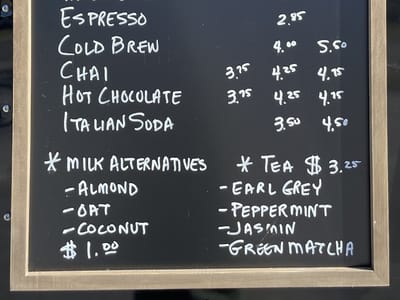 ESPRESSO 2.95
COLD BREW 4.00 5.50
CHAI 3.75 4.25 4.75
HOT CHOCOLATE 3.75 4.25 4.75
ITALIAN SODA 3.50 4.50
* MILK ALTERNATIVES
- ALMOND
- OAT
- COCONUT
$1.00
* TEA $3.25
- EARL GREY
- PEPPERMINT
- JASMIN
- GREEN MATCHA